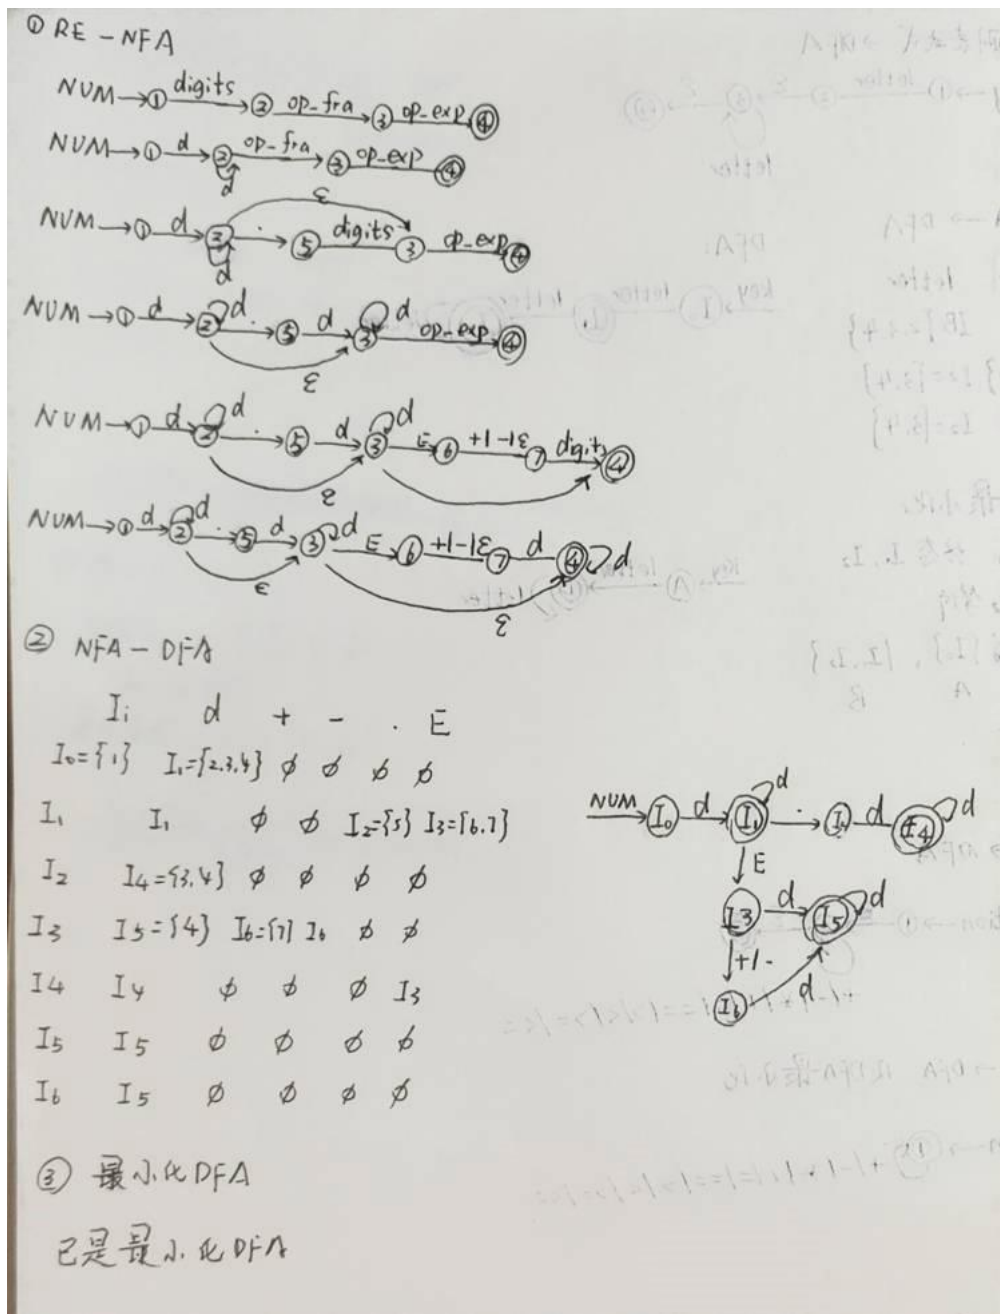 ① RE - NFA
NUM → ① digits ② op_fra ③ op_exp ④
NUM → ① d ② op_fra ③ op_exp ④
d
ε
NUM → ① d ② . ⑤ digits ③ op_exp ④
d
NUM → ① d ② d . ⑤ d ③ d op_exp ④
ε
NUM → ① d ② d . ⑤ d ③ d E ⑥ +|-|ε ⑦ digits ④
ε
NUM → ① d ② d . ⑤ d ③ d E ⑥ +|-|ε ⑦ d ④ d
ε
ε
② NFA - DFA
Ii d + - . E
I0={1} I1={2.3.4} ϕ ϕ ϕ ϕ
I1 I1 ϕ ϕ I2={5} I3={6.7}
I2 I4={3.4} ϕ ϕ ϕ ϕ
I3 I5={4} I6={7} I6 ϕ ϕ
I4 I4 ϕ ϕ ϕ I3
I5 I5 ϕ ϕ ϕ ϕ
I6 I5 ϕ ϕ ϕ ϕ
NUM I0 d I1 d . d I4 d
E
I3 d I5 d
+|-
I6 d
③ 最小化DFA
已是最小化DFA